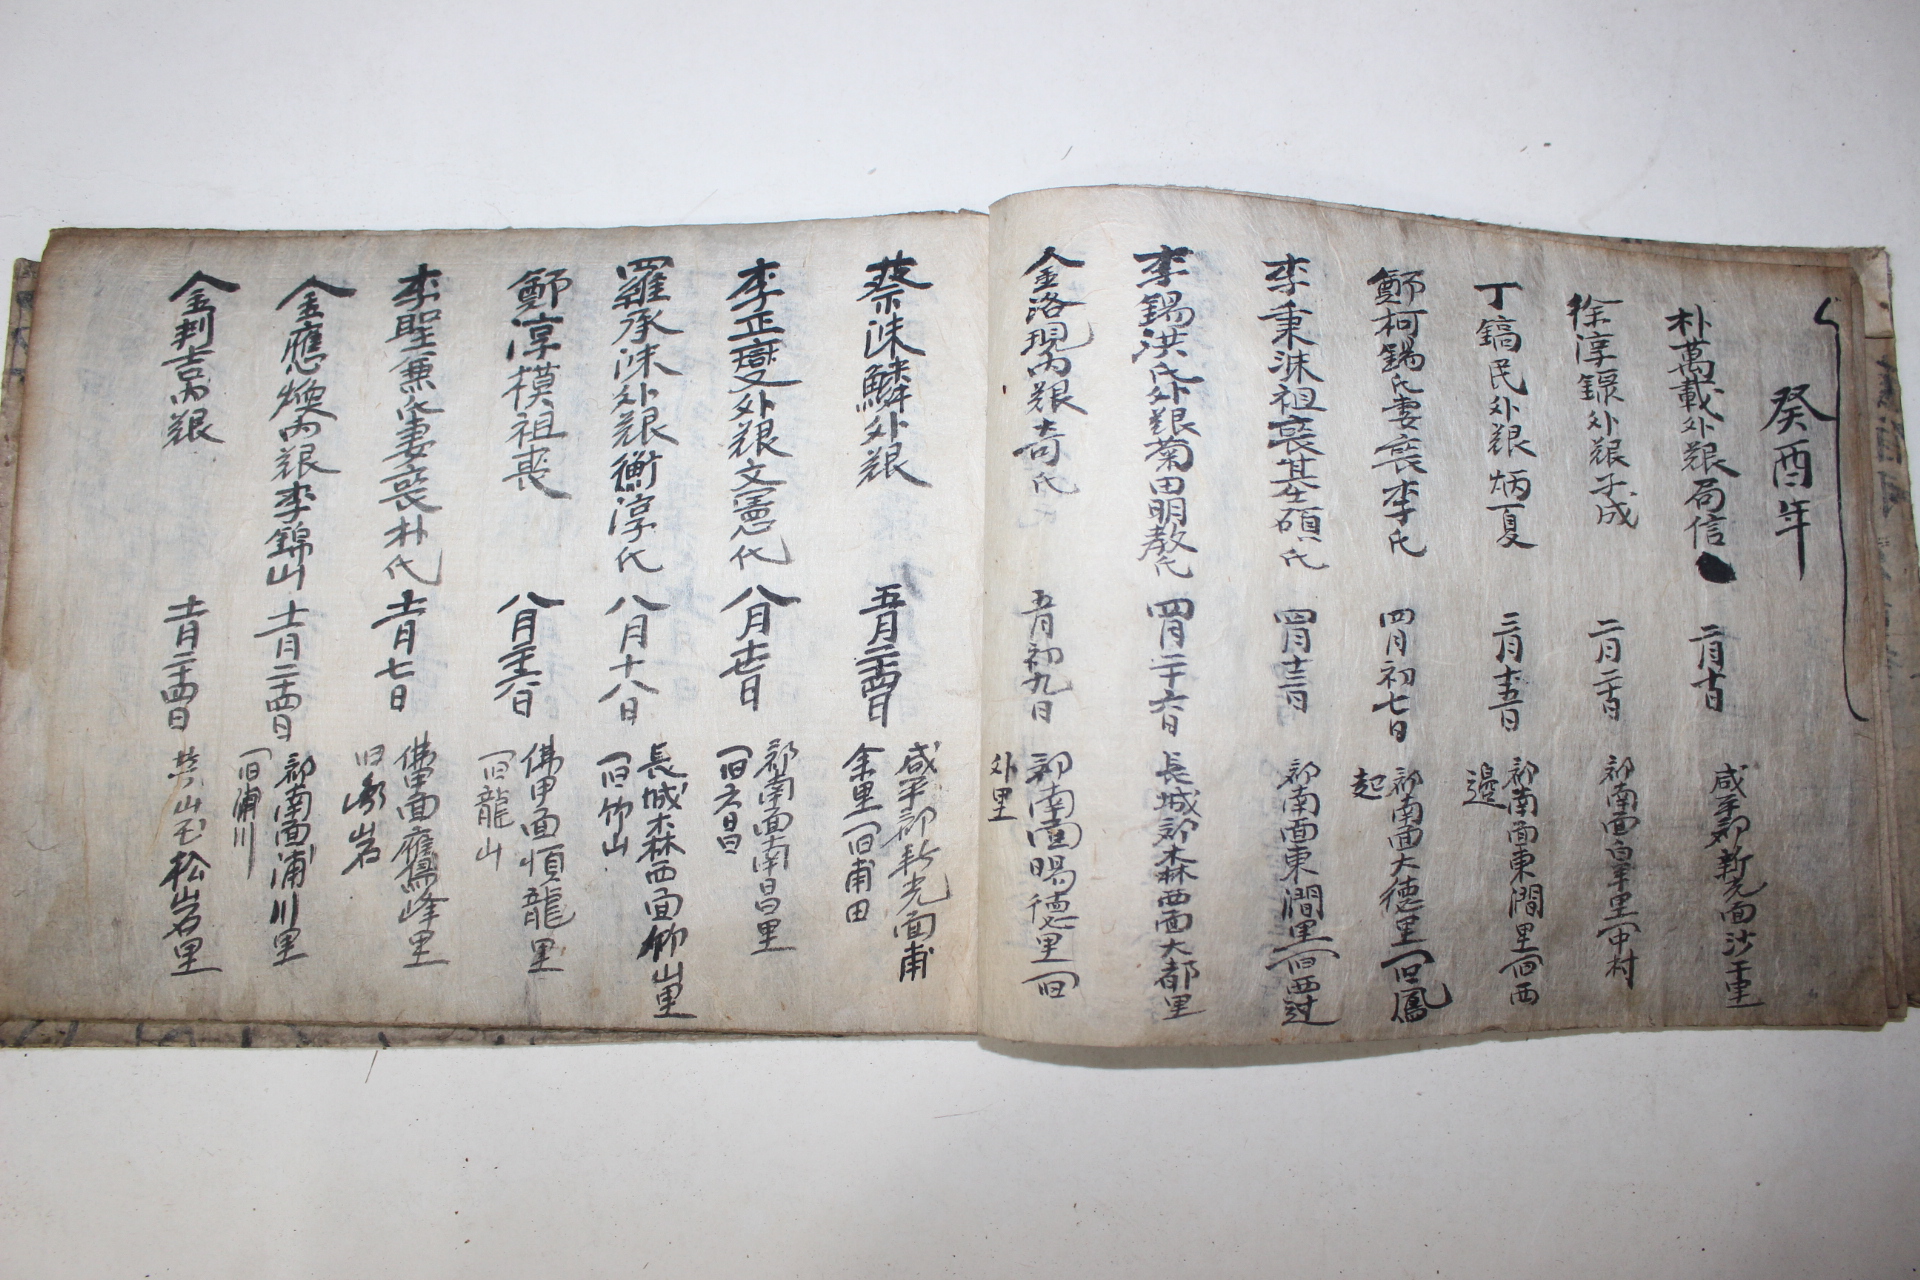 癸酉年
朴萬載外艱局信 二月十日 咸平郡新光面沙王里
徐淳錄外艱子成 二月二十日 郡南面白羊里旧中村
丁鎬民外艱炳夏 三月十五日 郡南面東澗里旧西邊
鄭柯錫氏妻喪李氏 四月初七日 郡南面大德里旧鳳起
李秉洙祖喪基碩氏 四月十三日 郡南面東澗里旧西过
李錫洪氏外艱菊田明教氏 四月二十六日 長城郡森西面大都里
金洛現內艱奇氏 五月初九日 郡南面賜德里旧外里
蔡洙鱗外艱 五月二十四日 咸平郡新光面甫余里旧甫田
李正燮外艱文憲氏 八月十七日 郡南面南昌里旧六昌
羅承洙外艱衡淳氏 八月十八日 長城森西面竹山里旧竹山
鄭淳模祖喪 八月二十六日 佛甲面順龍里旧龍山
李聖兼氏妻喪朴氏 十一月七日 佛甲面鷹峰里旧岩
金應煥內艱李錦山 十一月二十四日 郡南面浦川里旧浦川
金判吉內艱 十一月二十四日 松岩里